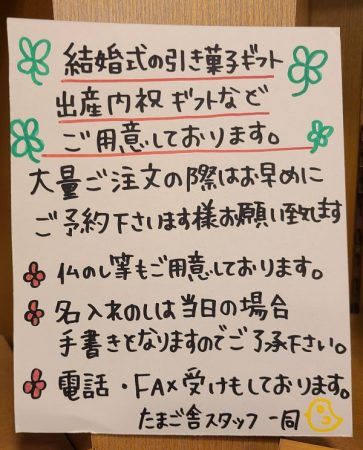 結婚式の引き菓子ギフト
出産内祝ギフトなど
ご用意しております。
大量ご注文の際はお早めに
ご予約下さいます様お願い致します
仏のし等もご用意しております。
名入れのしは当日の場合
手書きとなりますのでご了承下さい。
電話・FAX受けもしております。
たまご舎スタッフ一同